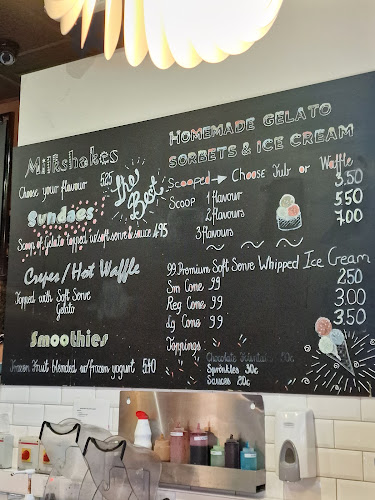 Milkshakes
Choose your flavour 5.25
The Best
Sundaes
Scoop of Gelato topped w/soft serve & sauce 4.95
Crepes / Hot Waffle
Topped with Soft Serve
Gelato
Smoothies
Frozen Fruit blended w/frozen yogurt 5.40
HOMEMADE GELATO
SORBETS & ICE CREAM
Scooped → Choose Tub or Waffle
Scoop 1 flavour 3.50
2 flavours 5.50
3 flavours 7.00
99 Premium Soft Serve Whipped Ice Cream
Sm Cone 99 2.50
Reg Cone 99 3.00
Lg Cone 99 3.50
Toppings
Chocolate
Sprinkles 30c
Sauces 20c